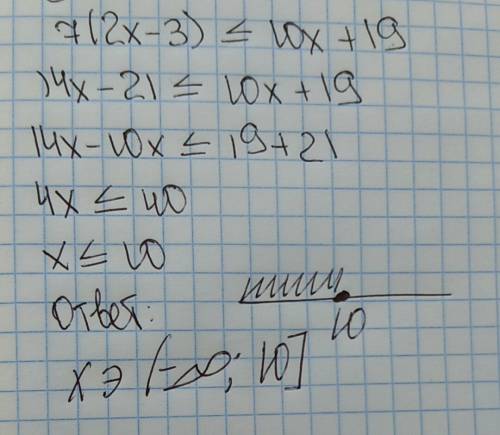 7(2x-3) ≤ 10x+19
14x-21 ≤ 10x+19
14x-10x ≤ 19+21
4x ≤ 40
x ≤ 10
Ответ:
10
x э (-∞; 10]